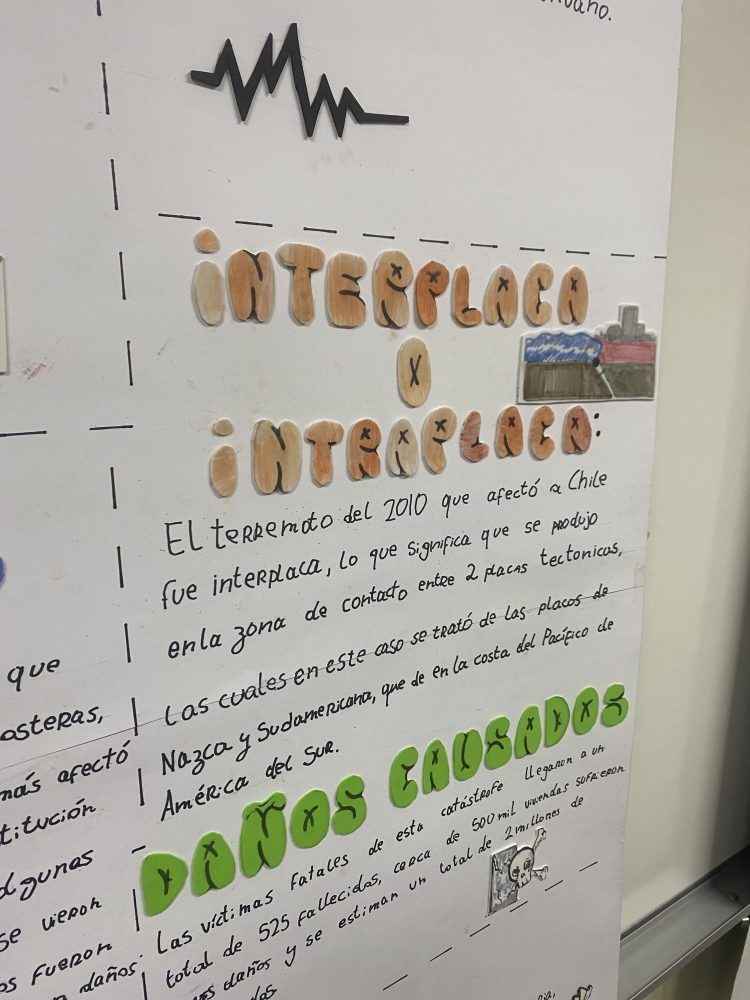 INTERPLACA
X
INTRAPLACA:
El terremoto del 2010 que afectó a Chile
fue interplaca, lo que significa que se produjo
en la zona de contacto entre 2 placas tectonicas,
Las cuales en este caso se trató de las placas de
Nazca y Sudamericana, que de en la costa del Pacífico de
América del Sur.
DAÑOS CAUSADOS
Las víctimas fatales de esta catástrofe llegaron a un
total de 525 fallecidas, cerca de 500 mil viviendas sufrieron
daños y se estiman un total de 2 millones de
que
más afectó
algunas
se vieron
fueron
daños.